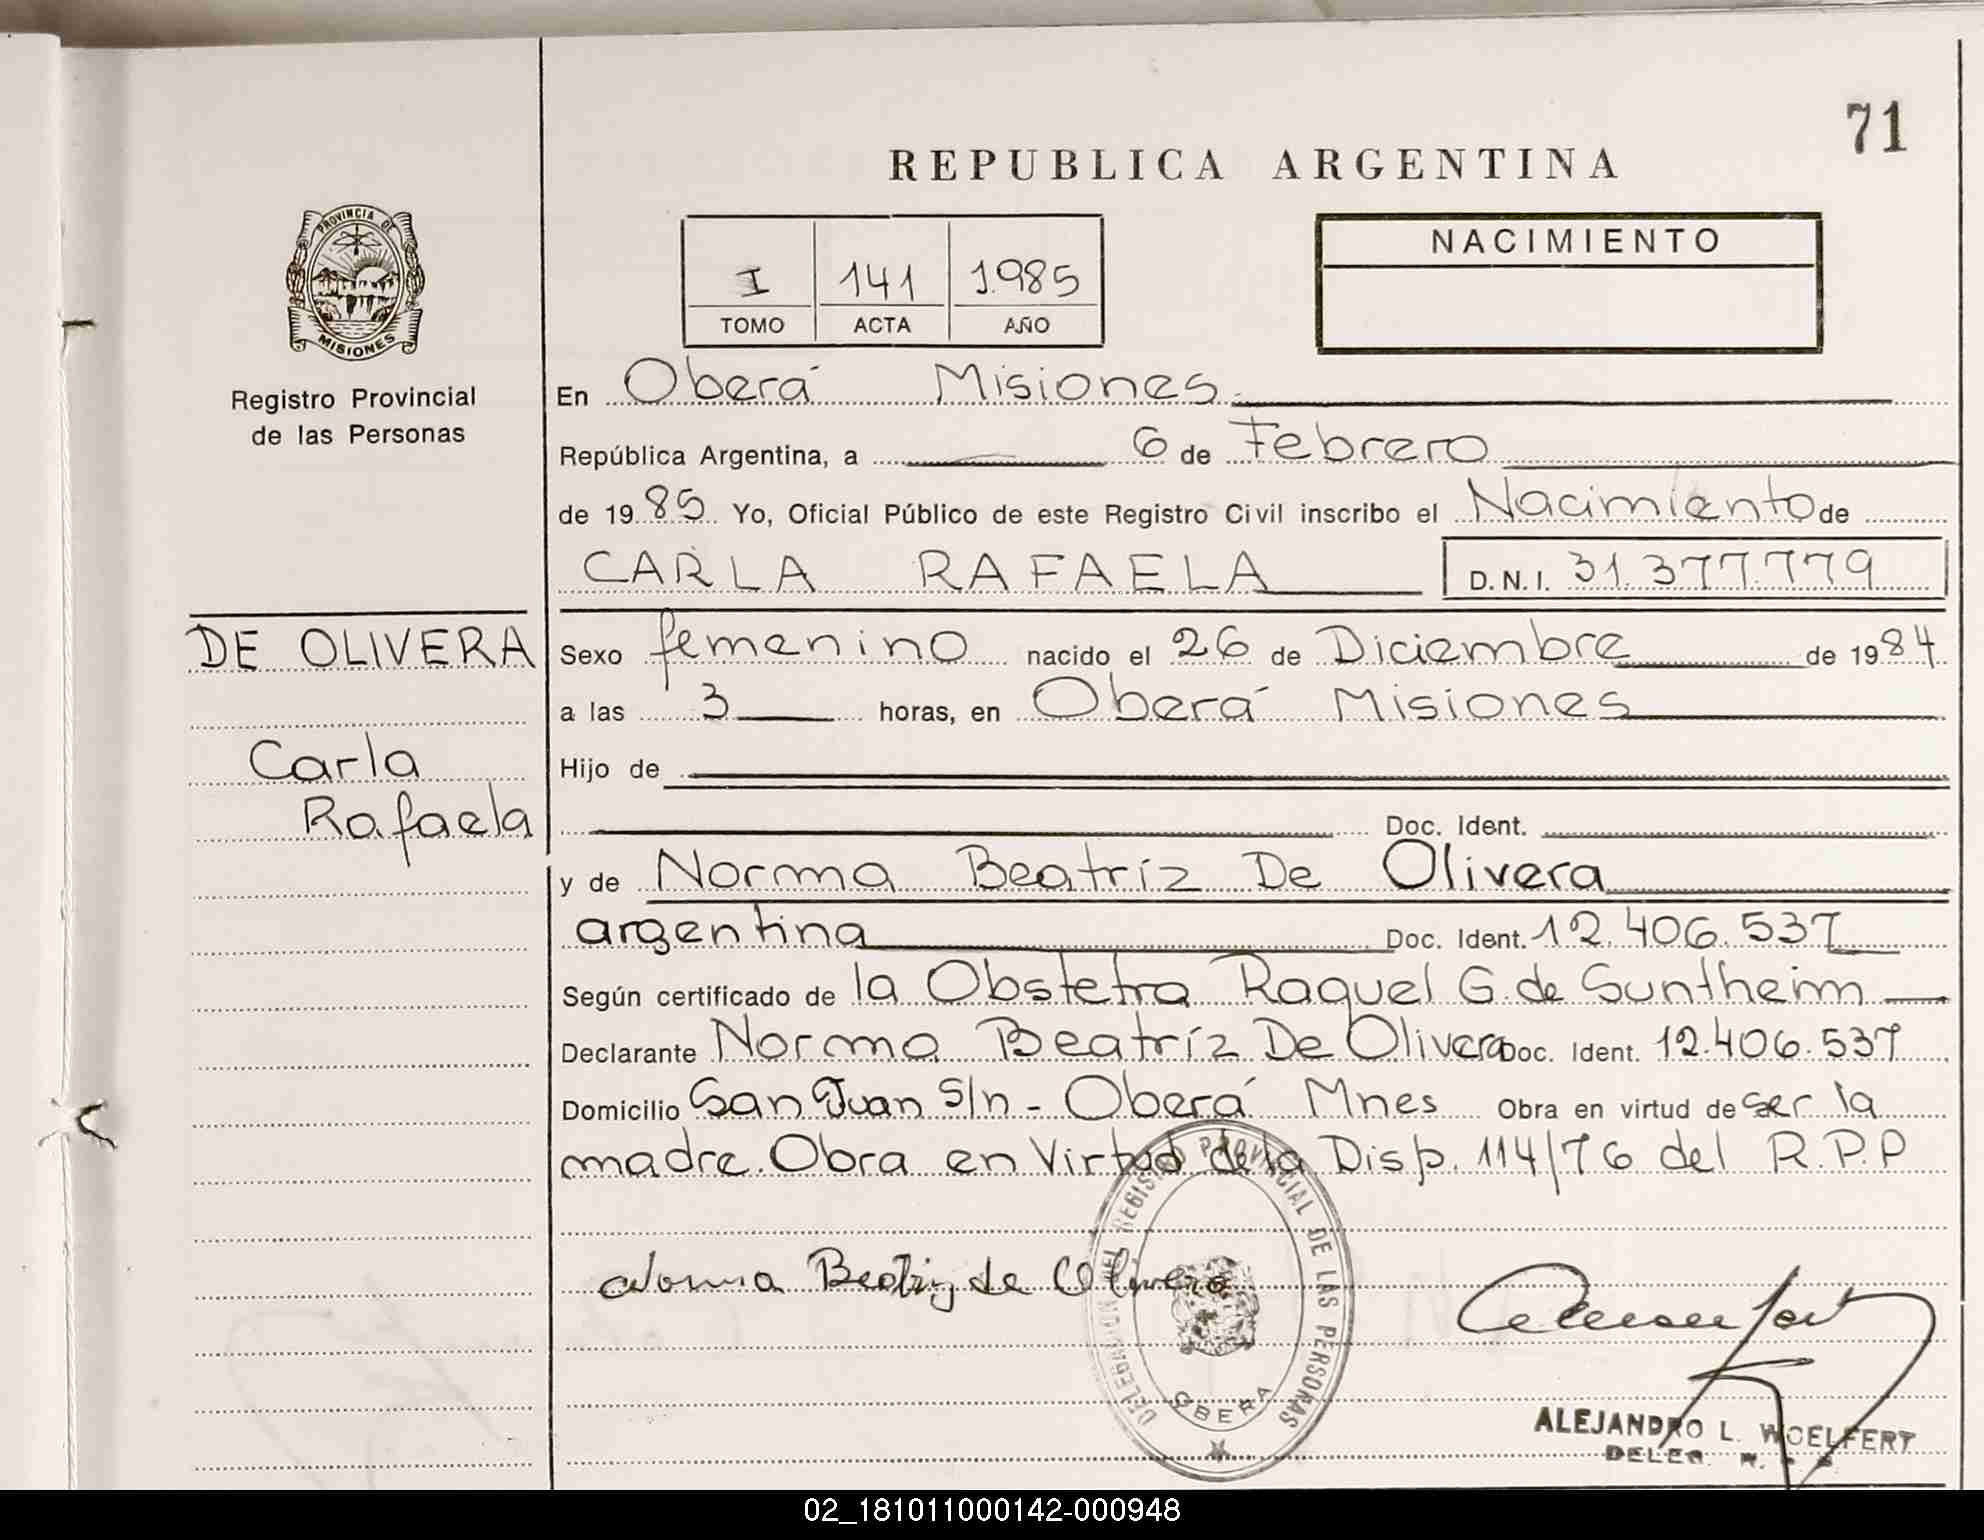 71
REPUBLICA ARGENTINA
PROVINCIA DE
MISIONES
Registro Provincial
de las Personas
I 141 1.985
TOMO ACTA AÑO
NACIMIENTO
En Oberá Misiones.
República Argentina, a 6 de Febrero
de 1985 Yo, Oficial Público de este Registro Civil inscribo el Nacimiento de
CARLA RAFAELA D.N.I. 31.377.779
DE OLIVERA
Carla
Rafaela
Sexo femenino nacido el 26 de Diciembre de 1984.
a las 3 horas, en Oberá Misiones
Hijo de
Doc. Ident.
y de Norma Beatríz De Olivera
argentina Doc. Ident. 12.406.537
Según certificado de la Obstetra Raquel G. de Suntheim
Declarante Norma Beatríz De Olivera Doc. Ident. 12.406.537
Domicilio San Juan S/n - Oberá Mnes Obra en virtud de ser la
madre. Obra en Virtud de la Disp. 114/76 del R.P.P
Norma Beatriz de Olivera
DELEGACION DEL REGISTRO PROVINCIAL DE LAS PERSONAS
OBERA
ALEJANDRO L. WOELFERT
DELEG.
02_181011000142-000948